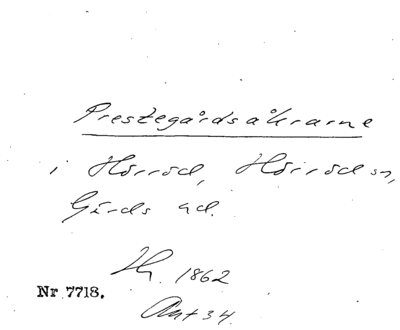 Prestegårdsåkrarne
i Hörröd, Hörröds sn,
Gärds hd.
1862
Nr 7718.
Ant 34